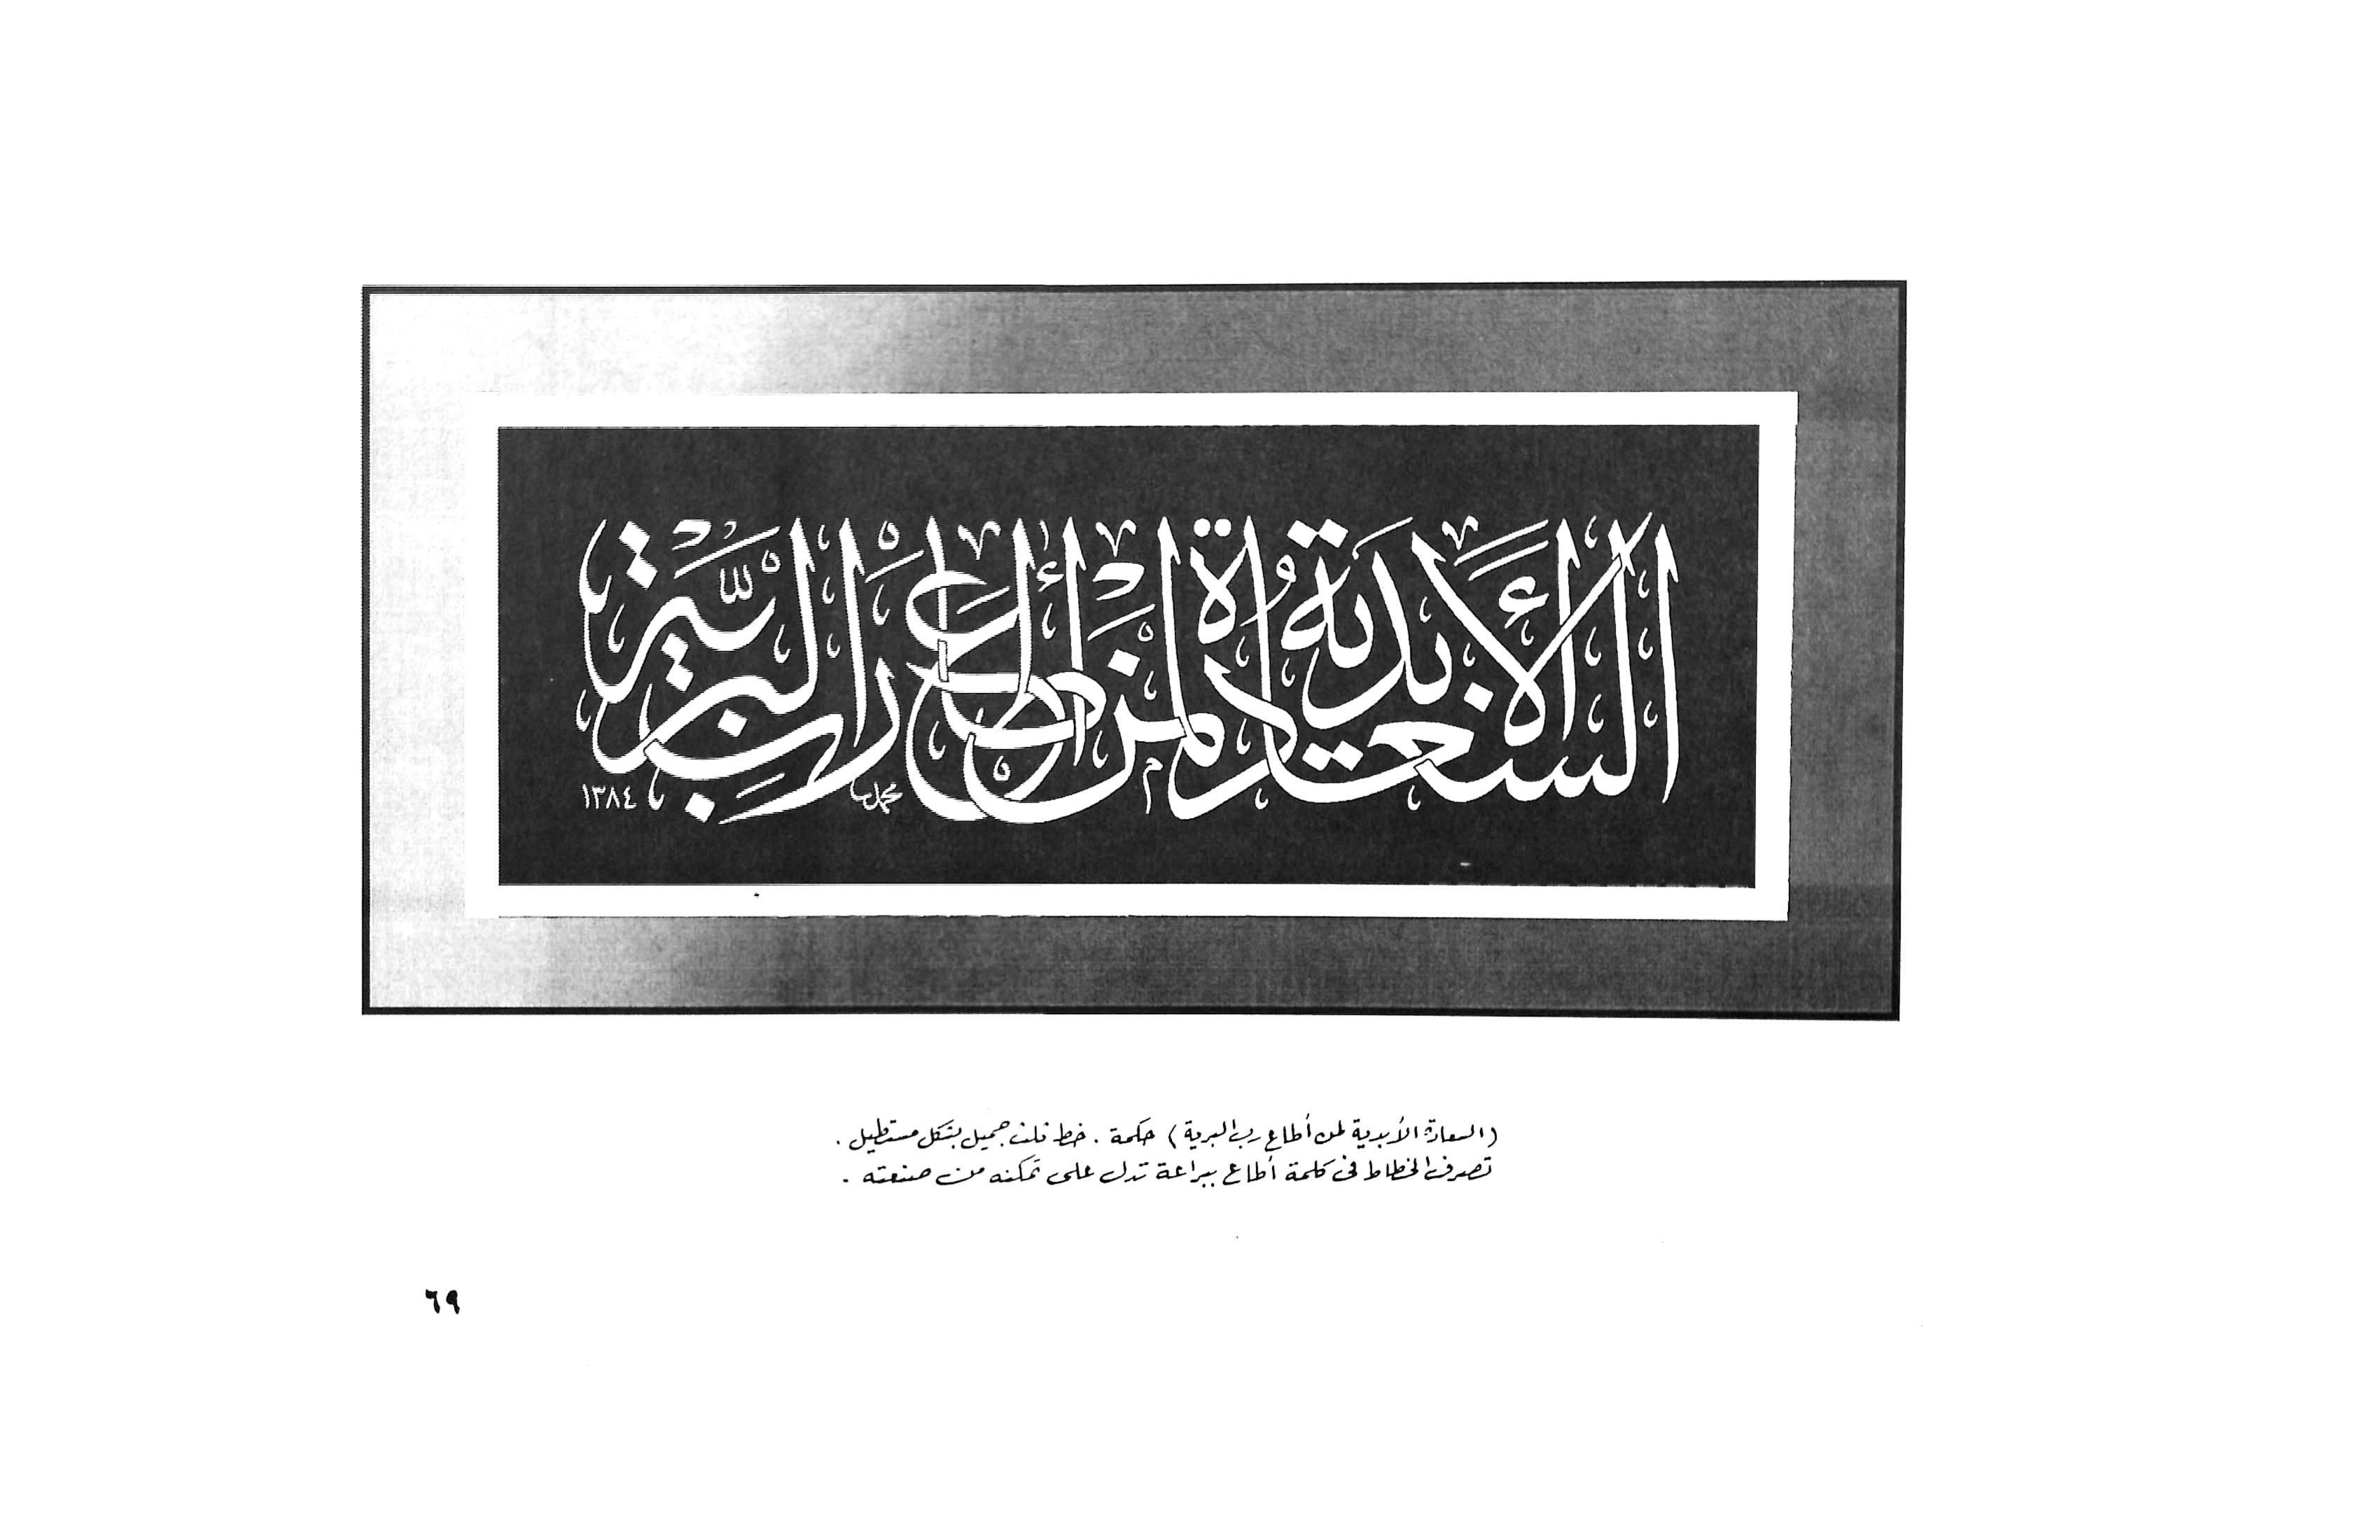 السعادة الأبدية لمن أطاع رب البرية
محمد
١٣٨٤
(السعادة الأبدية لمن أطاع رب البرية) حكمة . خط ثلث جميل بشكل مستطيل .
تصرف الخطاط في كلمة أطاع ببراعة تدل على تمكنه من صنعته .
٦٩